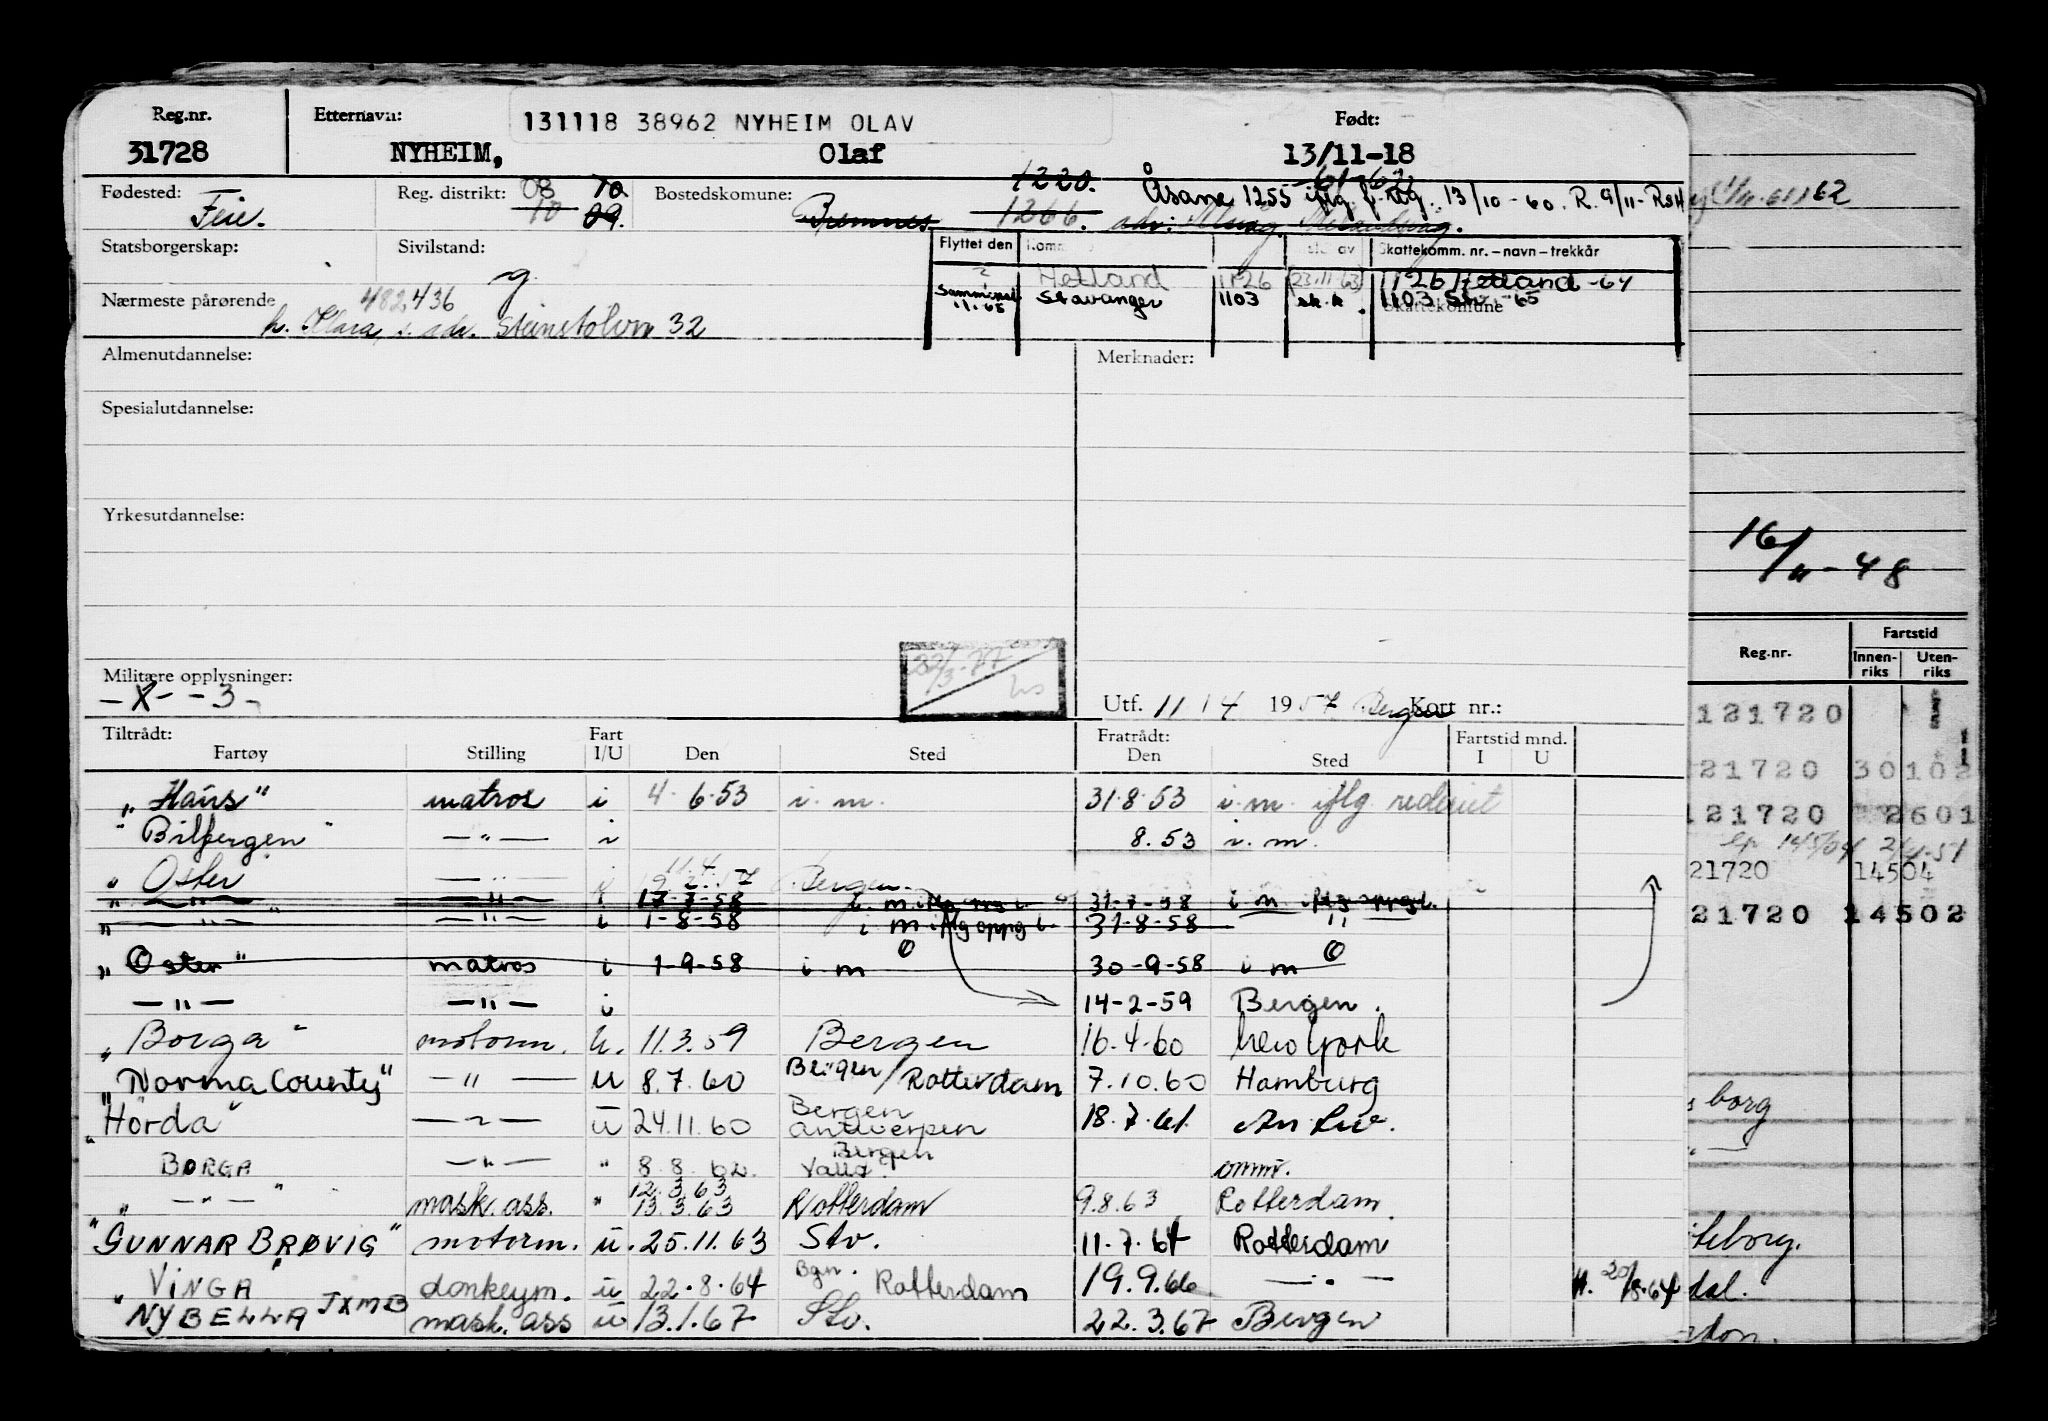 Reg.nr. Etternavn: 131118 38962 NYHEIM OLAV Født:
31728 NYHEIM, Olaf 13/11-18
Fødested: Feie. Reg. distrikt: 08 70 10 09. Bostedskomune: Bremnes 1220. 1266. Åsane 1255 iflg. f.reg. 13/10-60. R. 9/11-RSH
Statsborgerskap: Sivilstand: g.
Flyttet den Skattekomm. nr. – navn – trekkår
Hetland 1126 23.11.63 1126 Hetland -64
Stavanger 1103 sk.k. 1103 -65
11.65 Skattekomune
Nærmeste pårørende 482,436
h. Klara, s. adr. Steinstolvn 32
Almenutdannelse: Merknader:
Spesialutdannelse:
Yrkesutdannelse:
Militære opplysninger:
-X- -3-
Utf. 11/4 1957 Bergen Kort nr.:
Tiltrådt: Fratrådt:
Fartøy Stilling Fart I/U Den Sted Den Sted Fartstid mnd. I U
"Haus" matros i 4-6-53 i.m. 31.8.53 i.m. iflg rederiet
"Bilfergen" —"— i 8.53 i.m.
"Oster —"— i 11.4.57 Bergen.
—"— —"— i 1-7-58 i.m. iflg oppg. 31-7-58 i m iflg oppg.
—"— —"— i 1-8-58 i m iflg oppg 31-8-58 "
"Oster" matros i 1-9-58 i m 30-9-58 i m
—"— —"— i 14-2-59 Bergen.
"Borga" motorm. u. 11.3.59 Bergen 16-4-60 New York
"Norma County" —"— u 8.7.60 Bergen/Rotterdam 7.10.60 Hamburg
"Horda" —"— u 24.11.60 Bergen Antwerpen 18.7.61.
BORGA —"— " 8.8.62. Bergen
"—"—" mask.ass. " 12.3.63 13.3.63 Rotterdam 9.8.63 Rotterdam
"GUNNAR BRØVIG" motorm. u. 25.11.63 Stv. 11.7.64 Rotterdam
"VINGA" donkeym. u 22.8.64 Bgn. Rotterdam 19.9.66 —"—
"NYBELLA JXMB mask. ass u 13.1.67 Stv. 22.3.67 Bergen
16/11-48
Reg.nr. Fartstid Innenriks Utenriks
121720
21720 30102
121720 2601
21720 14504
21720 14502
borg
teborg.
dal.